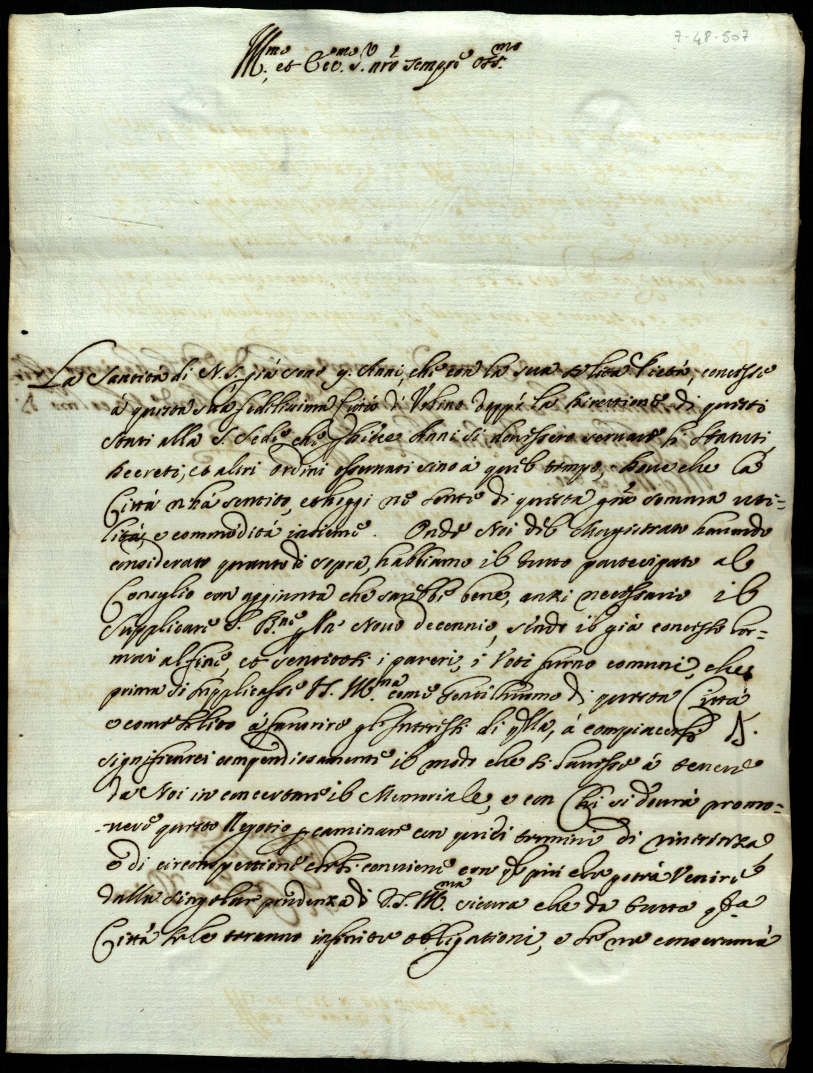 7-48-507
Ill.mo et Ecc.mo S. nro sempre oss.mo
La Santità di N. S. già sono 9. Anni, che con la sua solita Pietà, concesse
à questa sua fedelissima Città di Urbino doppò la direttione di questi
stati alla S. Sede, che per dieci Anni si dovessero servare li Statuti,
decreti, et altri ordini osservati sino à quel tempo, dove che la
Città n'hà sentito, et hoggi ne sente di questa gra somma uti=
lità, e commodità insieme. Onde Noi del Magistrato havendo
considerato quanto di sopra, habbiamo il tutto partecipato al
Conseglio con aggiunta che sarebbe bene, anzi necessario il
supplicare S. B.ne per un Novo decennio, sendo il già concesso hor=
mai al fine, et sentiti i pareri, i Voti furno comuni, che
prima si supplicasse V.S. Ill.ma come Gentilhuomo di questa Città
e come solito à favorire gl'Interessi di essa, à compiacersi
significarci compendiosamente il modo che si havesse à tenere
da Noi in concertare il Memoriale, e con Chi si dovrà promo=
=vere questo Negotio per caminare con quei termini di
e di circonspettione che si conviene con il più che potrà Venire
dalla singolar prudenza di V.S. Ill.ma sicura che da tutta q.sta
Città se le teranno infinite obligationi, e se ne conserverà